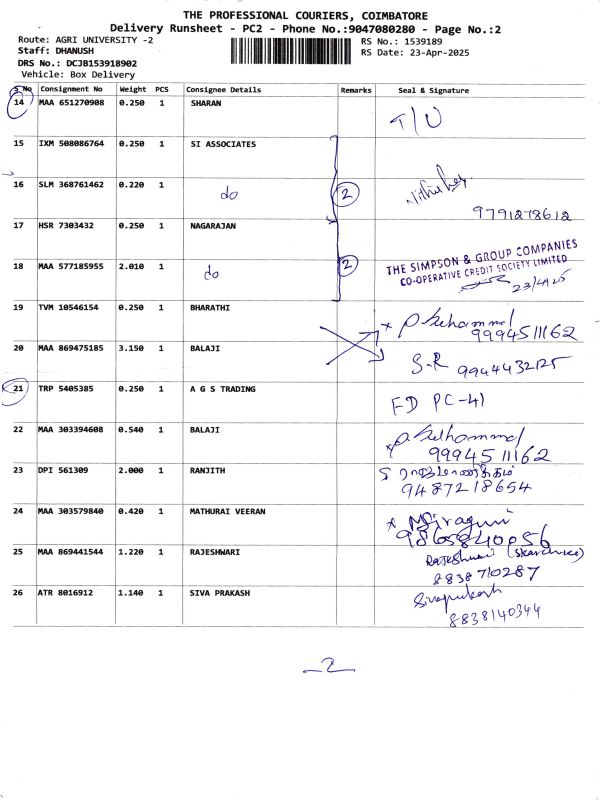 THE PROFESSIONAL COURIERS, COIMBATORE
Delivery Runsheet - PC2 - Phone No.:9047080280 - Page No.:2
Route: AGRI UNIVERSITY -2
RS No.: 1539189
Staff: DHANUSH
RS Date: 23-Apr-2025
DRS No.: DCJB153918902
Vehicle: Box Delivery
S No Consignment No Weight PCS Consignee Details Remarks Seal & Signature
14 MAA 651270908 0.250 1 SHARAN
T/U
15 IXM 508086764 0.250 1 SI ASSOCIATES
16 SLM 368761462 0.220 1 do 2
9791278612
17 HSR 7303432 0.250 1 NAGARAJAN
18 MAA 577185955 2.010 1 do 2
THE SIMPSON & GROUP COMPANIES
CO-OPERATIVE CREDIT SOCIETY LIMITED
23/4/25
19 TVM 10546154 0.250 1 BHARATHI
9994511162
20 MAA 869475185 3.150 1 BALAJI
S.R 9944432125
21 TRP 5405385 0.250 1 A G S TRADING
FD PC-41
22 MAA 303394608 0.540 1 BALAJI
9994511162
23 DPI 561309 2.000 1 RANJITH
9487218654
24 MAA 303579840 0.420 1 MATHURAI VEERAN
9865840056
25 MAA 869441544 1.220 1 RAJESHWARI
Rajeshwari
8838710287
26 ATR 8016912 1.140 1 SIVA PRAKASH
Sivaprakash
8838140344
2